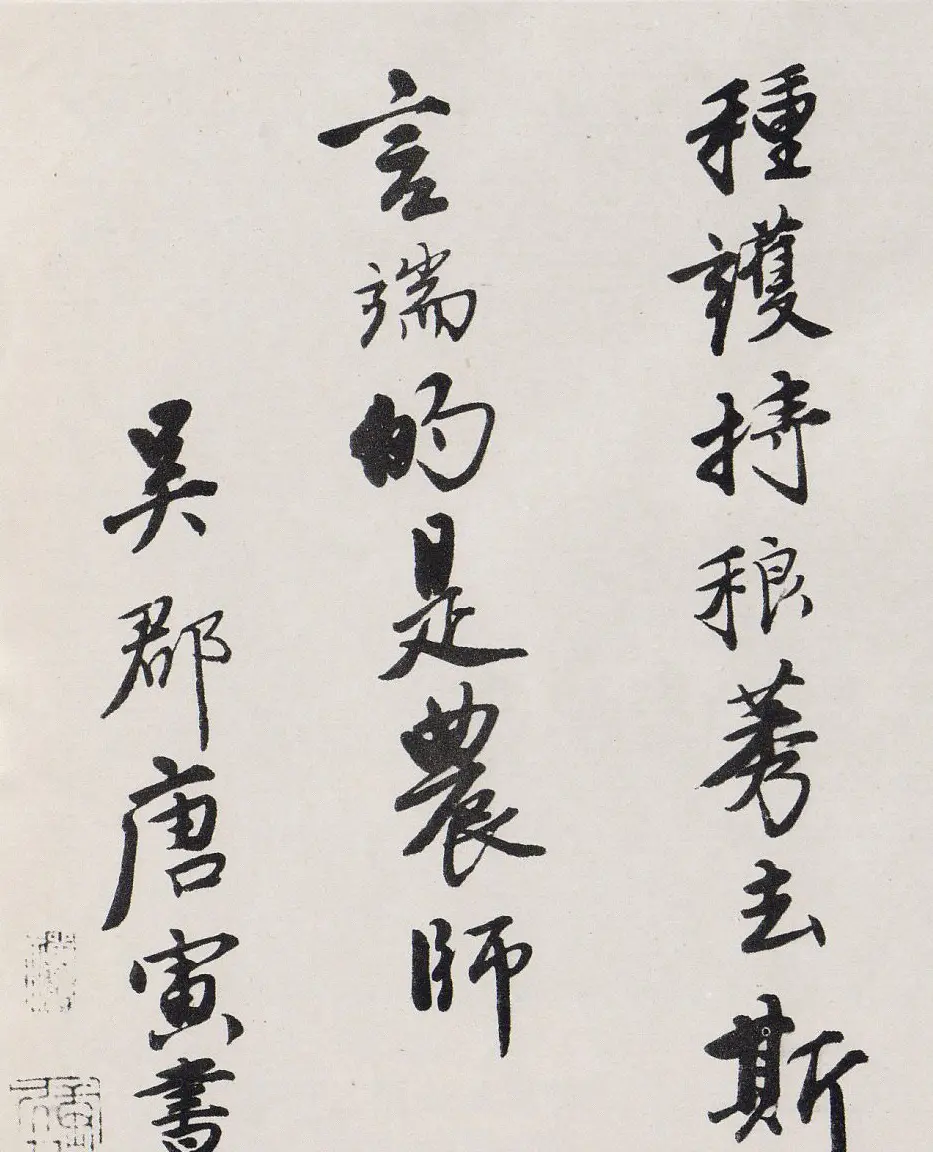 種護持稂莠去斯
言端的是農師
吳郡唐寅書